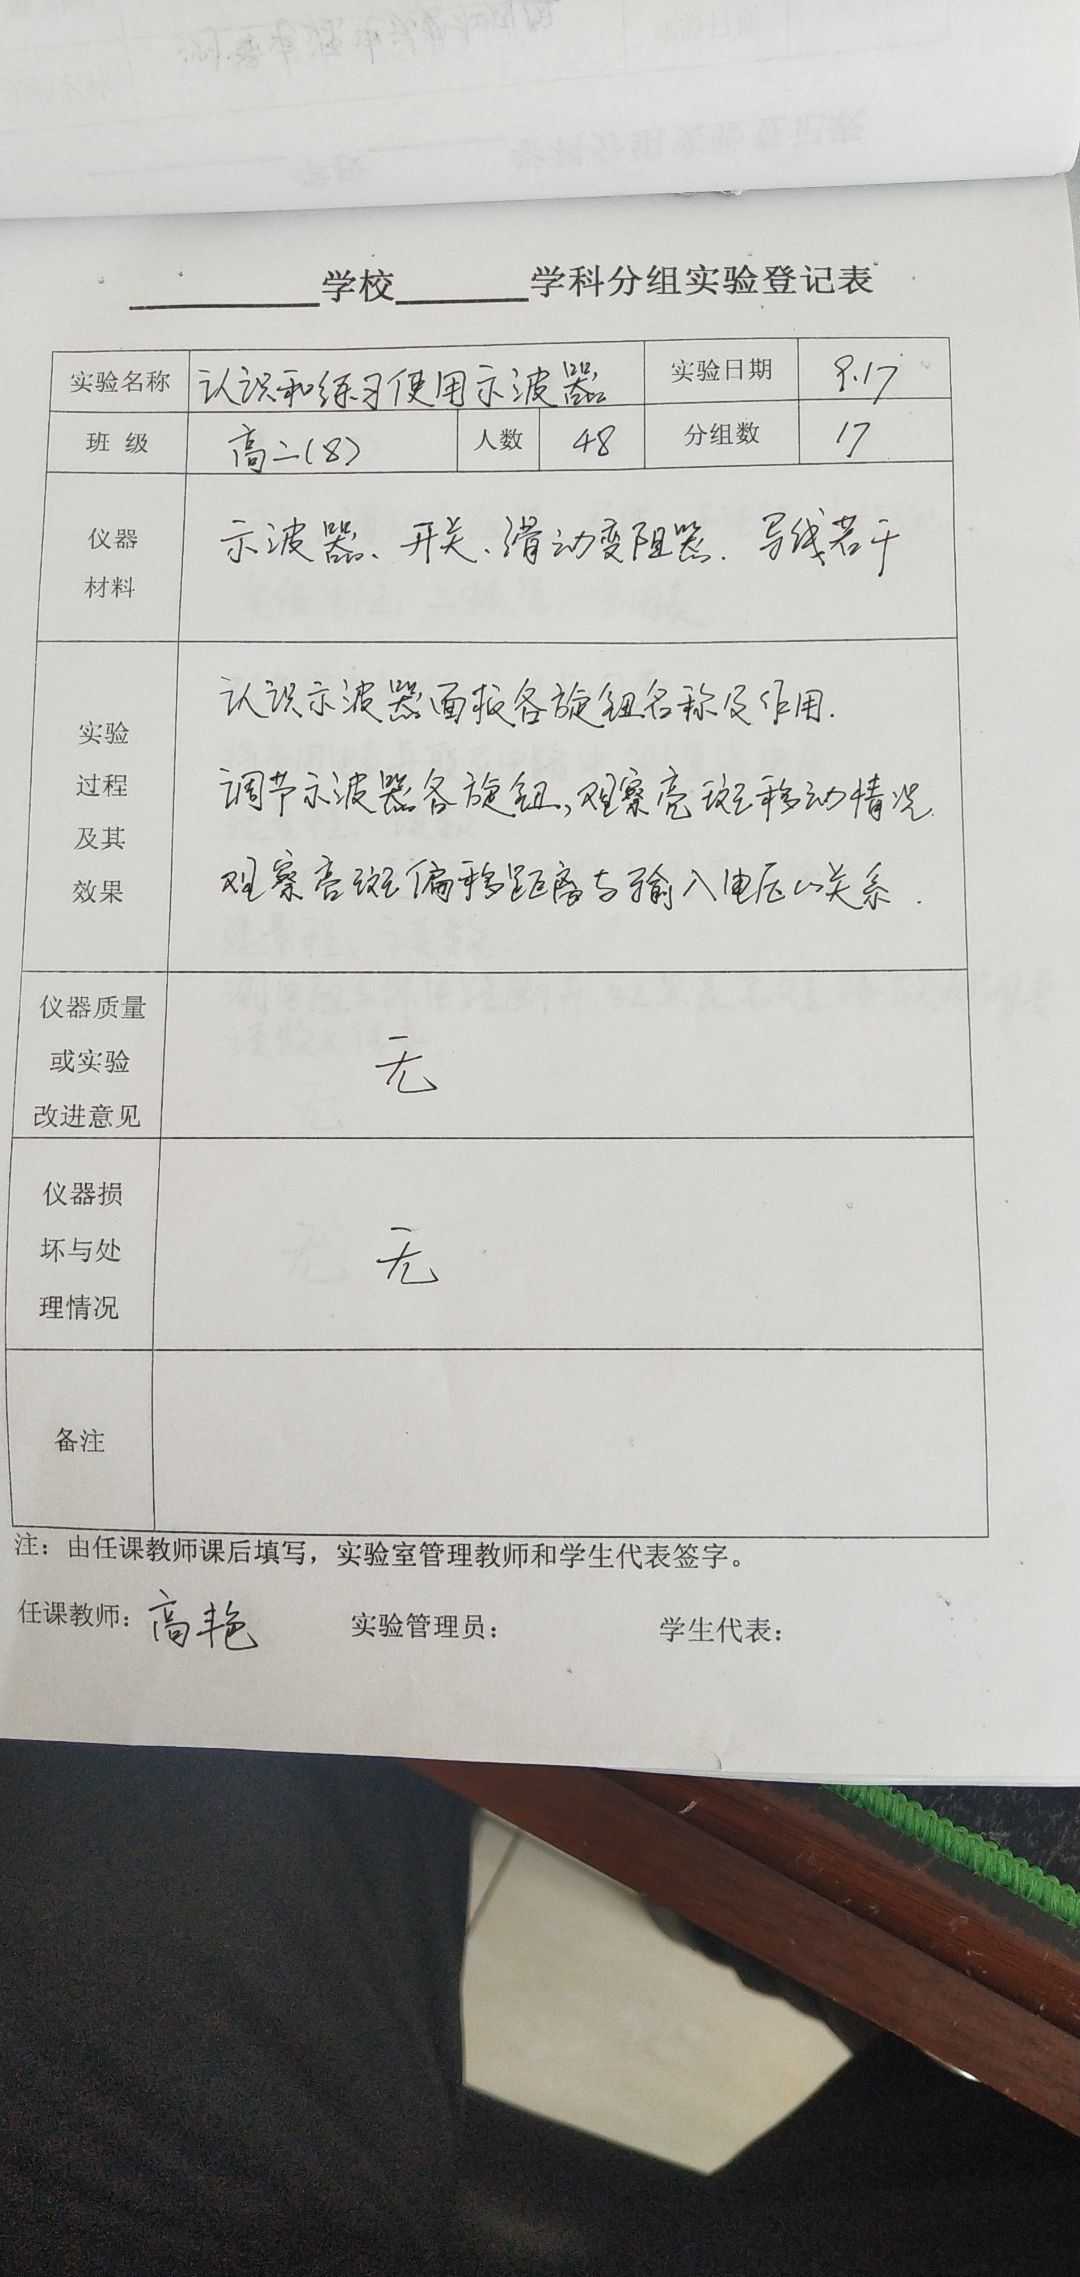 ______学校______学科分组实验登记表
实验名称 认识和练习使用示波器 实验日期 9.17
班 级 高二(8) 人数 48 分组数 17
仪器
材料
示波器、开关、滑动变阻器、导线若干
实验
过程
及其
效果
认识示波器面板各旋钮名称及作用.
调节示波器各旋钮,观察亮斑移动情况.
观察亮斑偏移距离与输入电压的关系.
仪器质量
或实验
改进意见
无
仪器损
坏与处
理情况
无
备注
注：由任课教师课后填写，实验室管理教师和学生代表签字。
任课教师：高艳 实验管理员： 学生代表：